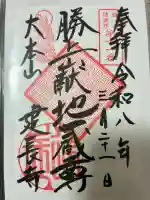 奉拝 令和八年
三月二十一日
勝上嶽地蔵尊
大本山
建長寺